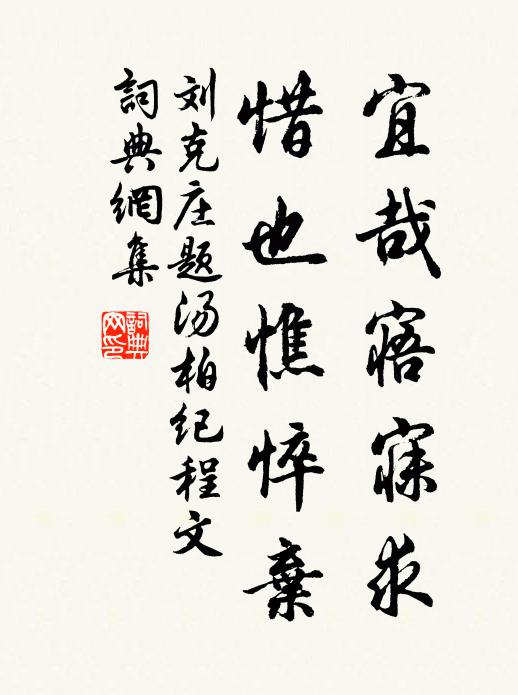 宜哉寤寐求
惜也憔悴棄
刘克庄题汤柏纪程文
詞典網集
詞典
网印